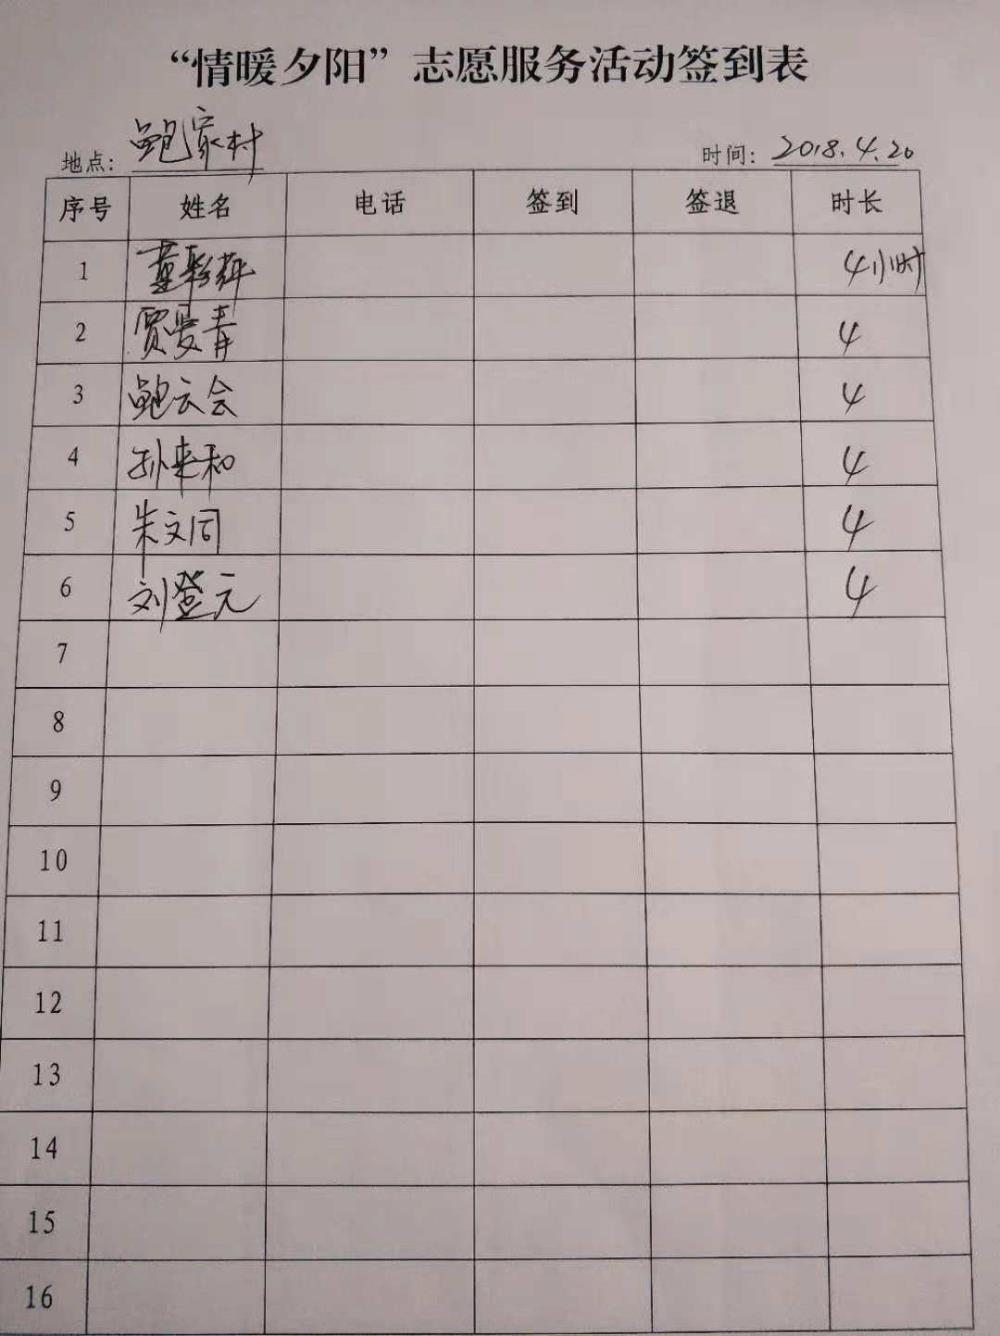 “情暖夕阳”志愿服务活动签到表
地点：鲍家村 时间：2018.4.20
序号 姓名 电话 签到 签退 时长
1 董彩 4小时
2 贾爱青 4
3 鲍云会 4
4 孙来和 4
5 朱文同 4
6 刘登元 4
7
8
9
10
11
12
13
14
15
16